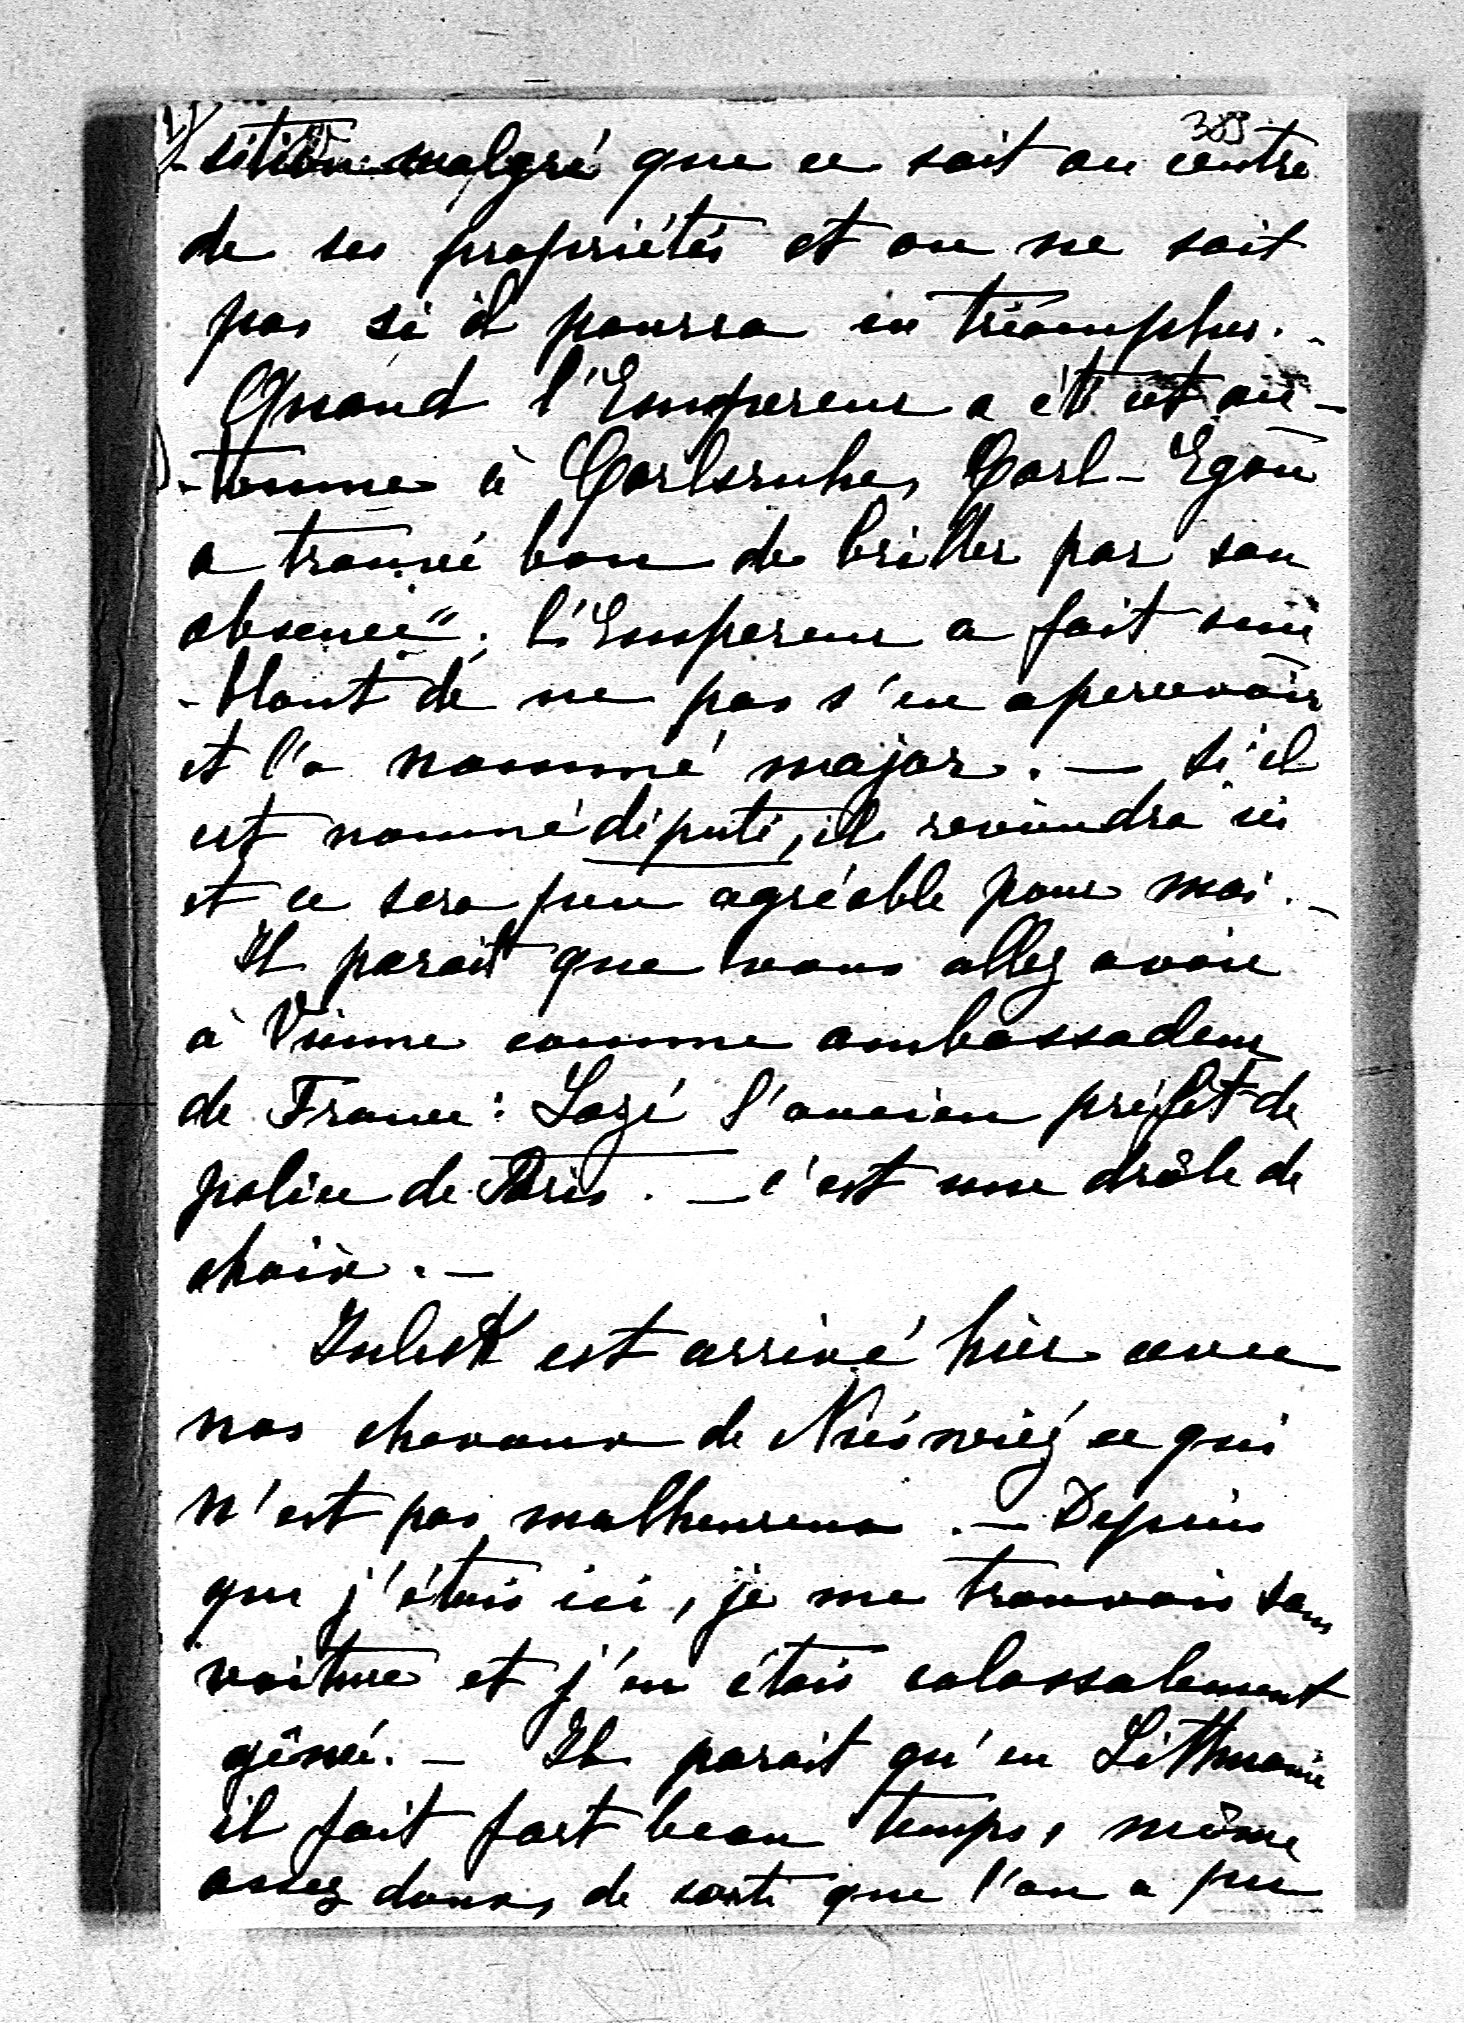 383
-sition malgré que ce soit au centre
de ses propriétés et on ne sait
pas si il pourra en triompher. -
Quand l'Empereur a été cet au-
-tomne à Carlsruhe, Carl-Egon
a trouvé bon de briller par son
absence"; l'Empereur a fait sem
-blant de ne pas s'en apercevoir
et l'a nommé major. — Si il
est nommé député, il reviendra ici
et ce sera peu agréable pour moi. -
Il parait que vous allez avoir
à Vienne comme ambassadeur
de France: Lozé l'ancien préfet de
police de Paris. — c'est une drôle de
choix. —
est arrivé hier avec
nos chevaux de Nieświeź ce qui
n'est pas malheureux. — Depuis
que j'étais ici, je me trouvais sans
voiture et j'en étais colossalement
gêné. — Il parait qu'en Litthuanie
il fait fort beau temps, même
assez doux, de sorte que l'on a pu